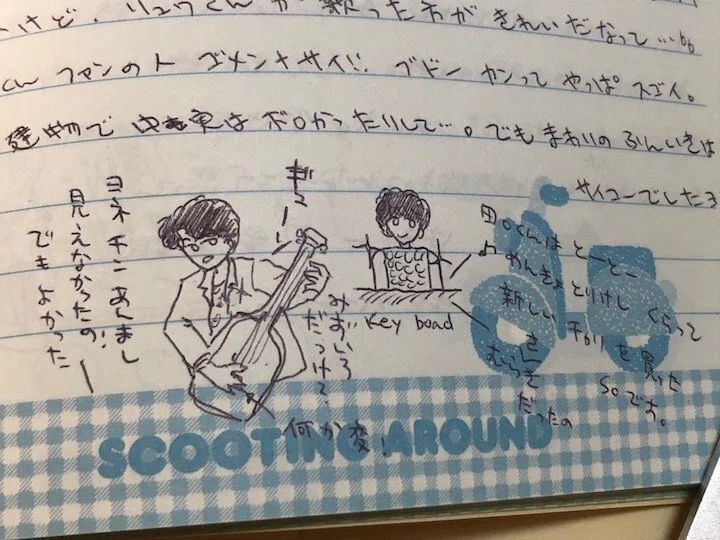 いけど、リュウくんが歌った方がきれいだなって…
くんファンの人 ゴメンナサイ!! ブドーカンって やっぱ スゴイ。
建物で 中実はボロかったりして…。でも まわりの ふんいきは
サイコーでした
ヨネチンあんまし
見えなかったの!
でもよかった
ギューーン
みずいろ
だっけ?
何か変!
Key boad
田○くんは とーとー
めんきょとりけし くらって
新しい
を見た
soです。
むらさき
だったの
SCOOTING AROUND